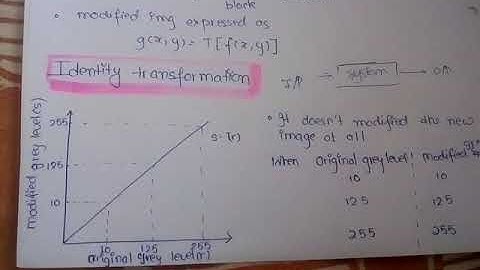 black
• modified img expressed as
g(x,y) = T[f(x,y)]
Identity transformation
I/P → system → O/P
• It doesn't modified the new
image at all
When original grey level modified
10 10
125 125
255 255
modified grey level(s)
255
125
10
s=T(r)
10 125 255
original grey level(r)